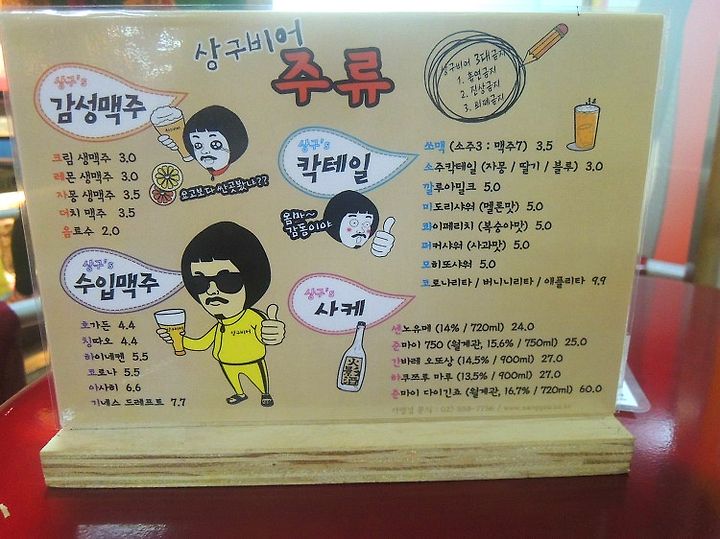 상구비어
주류
상구비어 3대금지
1. 흡연금지
2. 진상금지
3. 외제금지
상구's
감성맥주
크림 생맥주 3.0
레몬 생맥주 3.0
자몽 생맥주 3.5
더치 맥주 3.5
음료수 2.0
요고보다 싼곳봤나??
상구's
칵테일
쏘맥 (소주3 : 맥주7) 3.5
소주칵테일 (자몽 / 딸기 / 블루) 3.0
깔루아밀크 5.0
미도리샤워 (멜론맛) 5.0
쿽이페리치 (복숭아맛) 5.0
퍼커샤워 (사과맛) 5.0
모히또샤워 5.0
코로나리타 / 버니니리타 / 애플리타 9.9
옴마~
감동이야
상구's
수입맥주
호가든 4.4
칭따오 4.4
하이네켄 5.5
코로나 5.5
아사히 6.6
기네스 드레프트 7.7
상구비어
상구's
사케
센노유메 (14% / 720ml) 24.0
준마이 750 (월계관, 15.6% / 750ml) 25.0
간바레 오또상 (14.5% / 900ml) 27.0
하쿠쯔루 마루 (13.5% / 900ml) 27.0
준마이 다이긴죠 (월계관, 16.7% / 720ml) 60.0